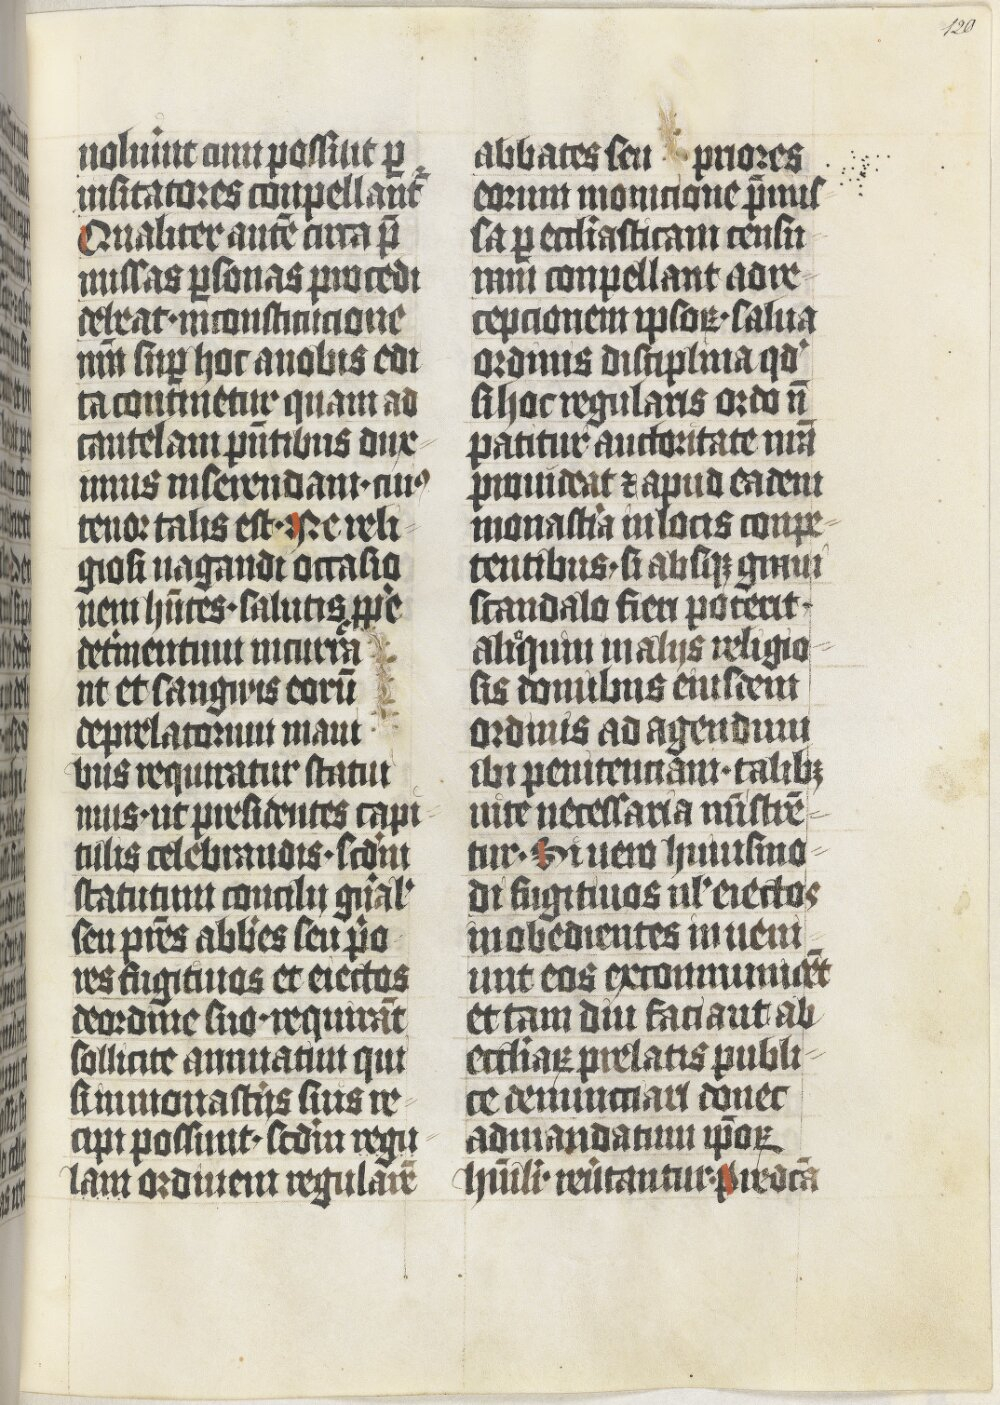 120
uoluerint cum possint ꝑ
uisitatores conpellant᷑
Qualiter autē circa p̄
missas ꝑsonas procedi
debeat · in constitucione
nr̄m suꝑ hoc a nobis edi
ta continetur quam ad
cautelam pn̄tibus dux-
imus inserendam · cuiꝰ
tenor talis est · Ne reli-
giosi uagandi occasio
nem hn̄tes · salutis ꝓpͥe
detͥmentum incurrā
nt et sanguis eorū
de prelatorum mani
bus requiratur statui
mus · ut presidentes capi-
tulis celebrandis · scd̄m
statutum concilij gn̄al'
seu pr̄es abb̄es seu pͥo
res fugitiuos et eiectos
de ordine suo · requirāt
sollicite annuatim qui
si in monastͥijs suis re-
cipi possunt · scd̄m regu-
lam ordinem regularē
abbates seu priores
eorum monicione p̄mis
sa ꝑ eccl̄iasticam censu
ram conpellant ad re-
cepcionem ipsoꝝ · salua
ordinis disciplina qd'
si hoc regularis ordo n̄
patitur auctoritate nr̄a
prouideat ⁊ apud eadem
monastͥia in locis conpe-
tentibus · si absqꝫ graui
scandalo fieri poterit ·
alioͥquin in alijs religio-
sis domibus eiusdem
ordinis ad agendum
ibi penitenciam · talibꝫ
uite necessaria mͥistrē-
tur · Si uero huiusmo-
di fugitiuos ul' eiectos
inobedientes inueni-
unt eos excommunicēt
et tam diu faciant ab
eccl̄iaꝝ prelatis publi-
ce denunciari donec
ad mandatum ip̄oꝝ
hūilit' reu̓tantur · Predcā